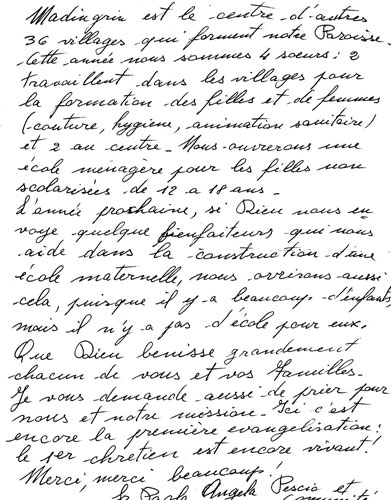 Madingrin est le centre d'autres
36 villages qui forment notre Paroisse.
Cette année nous sommes 4 soeurs: 2
travaillent dans les villages pour
la formation des filles et de femmes
(couture, hygiene, animation sanitaire)
et 2 au centre. Nous ouvrerons une
école menagère pour les filles non
scolarisées de 12 a 18 ans.
L'année prochaine, si Dieu nous en
voye quelque bienfaiteurs qui nous
aide dans la construction d'une
école maternelle, nous ovrirons aussi
cela, puisque il y a beaucoup d'enfants,
mais il n'y a pas d'école pour eux.
Que Dieu benisse grandement
chacun de vous et vos familles.
Je vous demande aussi de prier pour
nous et notre mission. Ici c'est
encore la première evangelisation:
le 1er chretien est encore vivant!
Merci, merci beaucoup!
Angela Pescia et